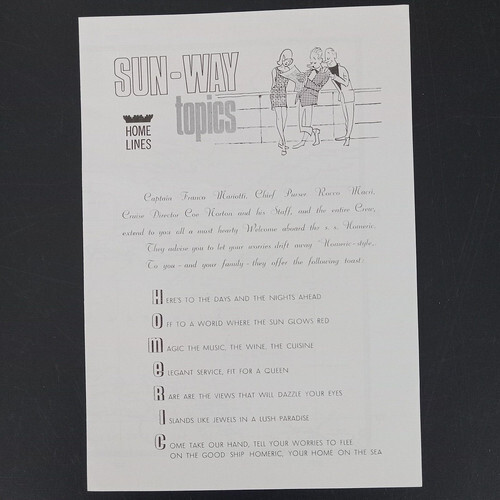 SUN-WAY
topics
HOME
LINES
Captain Franco Manatti, Chief Purser Rocco Macri,
Cruise Director Con Norton and his Staff, and the entire Crew,
extend to you all a most hearty Welcome aboard the s. s. Homeric.
They advise you to let your worries drift away "Homeric-style".
To you - and your family - they offer the following toast:
HERE'S TO THE DAYS AND THE NIGHTS AHEAD
OFF TO A WORLD WHERE THE SUN GLOWS RED
mAGIC THE MUSIC, THE WINE, THE CUISINE
eLEGANT SERVICE, FIT FOR A QUEEN
RARE ARE THE VIEWS THAT WILL DAZZLE YOUR EYES
ISLANDS LIKE JEWELS IN A LUSH PARADISE
COME TAKE OUR HAND, TELL YOUR WORRIES TO FLEE
ON THE GOOD SHIP HOMERIC, YOUR HOME ON THE SEA